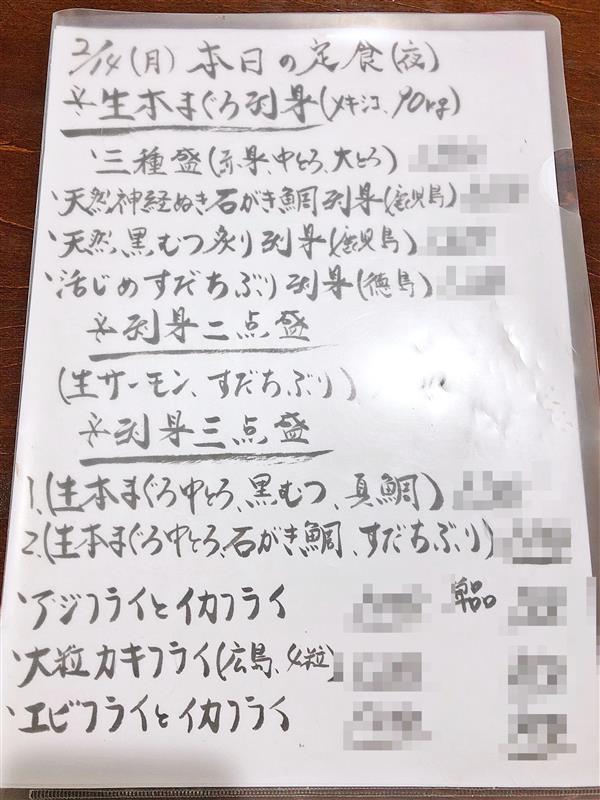 2/14(月) 本日の定食(夜)
*生本まぐろ刺身(メキシコ、90kg)
、三種盛(赤身、中とろ、大とろ)
、天然神経ぬき石がき鯛刺身(鹿児島)
、天然黒むつ炙り刺身(鹿児島)
、活じめすだちぶり刺身(徳島)
*刺身二点盛
(生サーモン、すだちぶり)
*刺身三点盛
1、(生本まぐろ中とろ、黒むつ、真鯛)
2、(生本まぐろ中とろ、石がき鯛、すだちぶり)
、アジフライとイカフライ 単品
、大粒カキフライ(広島、4粒)
、エビフライとイカフライ